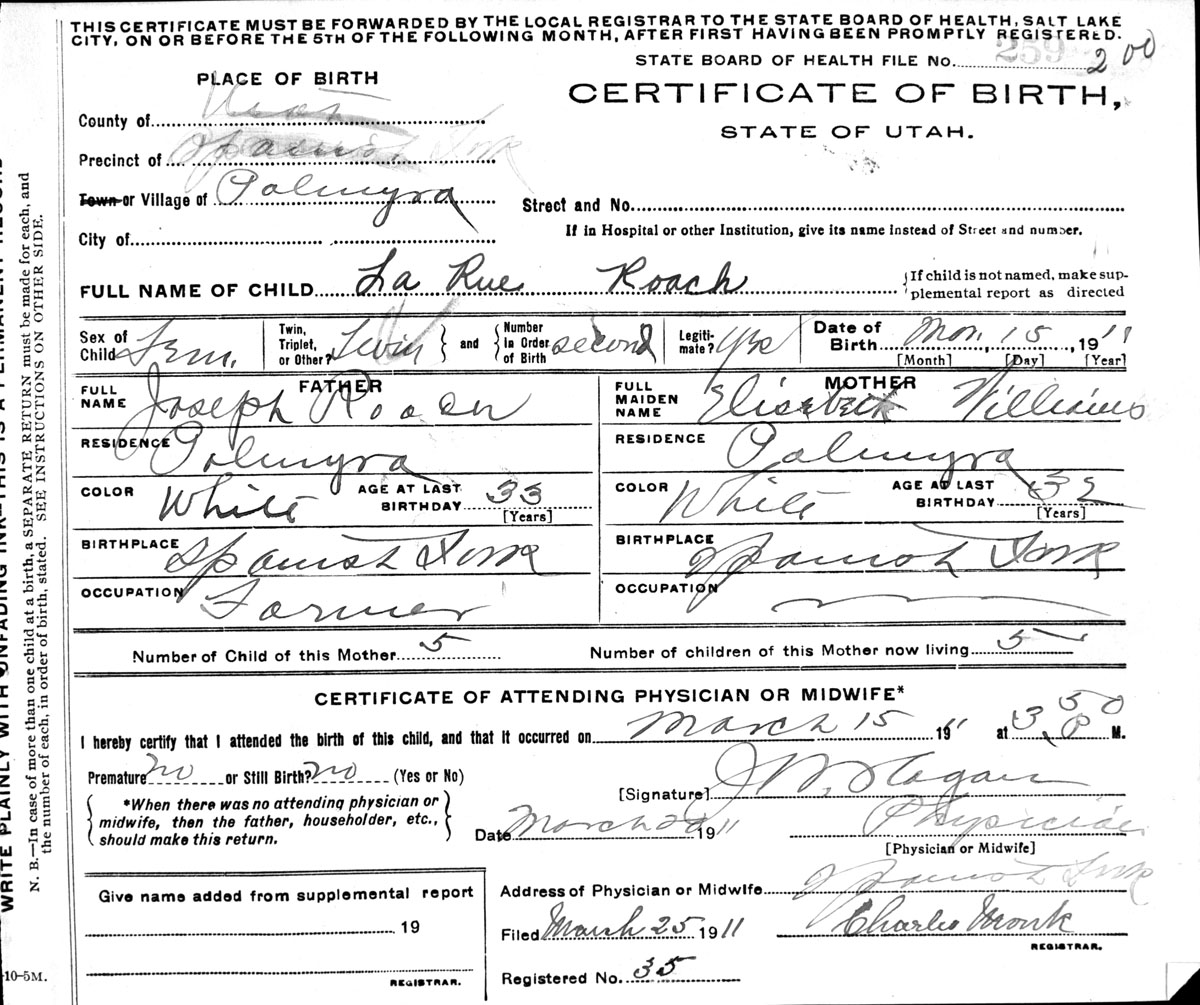 THIS CERTIFICATE MUST BE FORWARDED BY THE LOCAL REGISTRAR TO THE STATE BOARD OF HEALTH, SALT LAKE
CITY, ON OR BEFORE THE 5TH OF THE FOLLOWING MONTH, AFTER FIRST HAVING BEEN PROMPTLY REGISTERED.
STATE BOARD OF HEALTH FILE No. 259 200
PLACE OF BIRTH
CERTIFICATE OF BIRTH,
STATE OF UTAH.
County of Utah
Precinct of Spanish Fork
Town or Village of Palmyra
Street and No.
City of
If in Hospital or other Institution, give its name instead of Street and number.
FULL NAME OF CHILD La Rue Roach
{If child is not named, make sup-
plemental report as directed
Sex of Child Fem.
Twin, Triplet, or Other? Twin } and { Number In Order of Birth second
Legiti-mate? Yes
Date of Birth Mar, 15, 1911
[Month] [Day] [Year]
FATHER
FULL NAME Joseph Roach
RESIDENCE Palmyra
COLOR White AGE AT LAST BIRTHDAY 33
[Years]
BIRTHPLACE Spanish Fork
OCCUPATION Farmer
MOTHER
FULL MAIDEN NAME Elisebeth Williams
RESIDENCE Palmyra
COLOR White AGE AT LAST BIRTHDAY 32
[Years]
BIRTHPLACE Spanish Fork
OCCUPATION
Number of Child of this Mother 5
Number of children of this Mother now living 5
CERTIFICATE OF ATTENDING PHYSICIAN OR MIDWIFE*
I hereby certify that I attended the birth of this child, and that it occurred on March 15 1911 at 3 50 P M.
Premature no or Still Birth? no (Yes or No)
[Signature] J W. Hagan
*When there was no attending physician or
midwife, then the father, householder, etc.,
should make this return.
Date March 20 1911
Physician
[Physician or Midwife]
Give name added from supplemental report
19
REGISTRAR.
Address of Physician or Midwife Spanish Fork
Filed March 25 1911 Charles Monk
REGISTRAR.
Registered No. 35
WRITE PLAINLY WITH UNFADING INK—THIS IS A PERMANENT RECORD
N. B.—In case of more than one child at a birth, a SEPARATE RETURN must be made for each, and
the number of each, in order of birth, stated. SEE INSTRUCTIONS ON OTHER SIDE.
-10-5M.